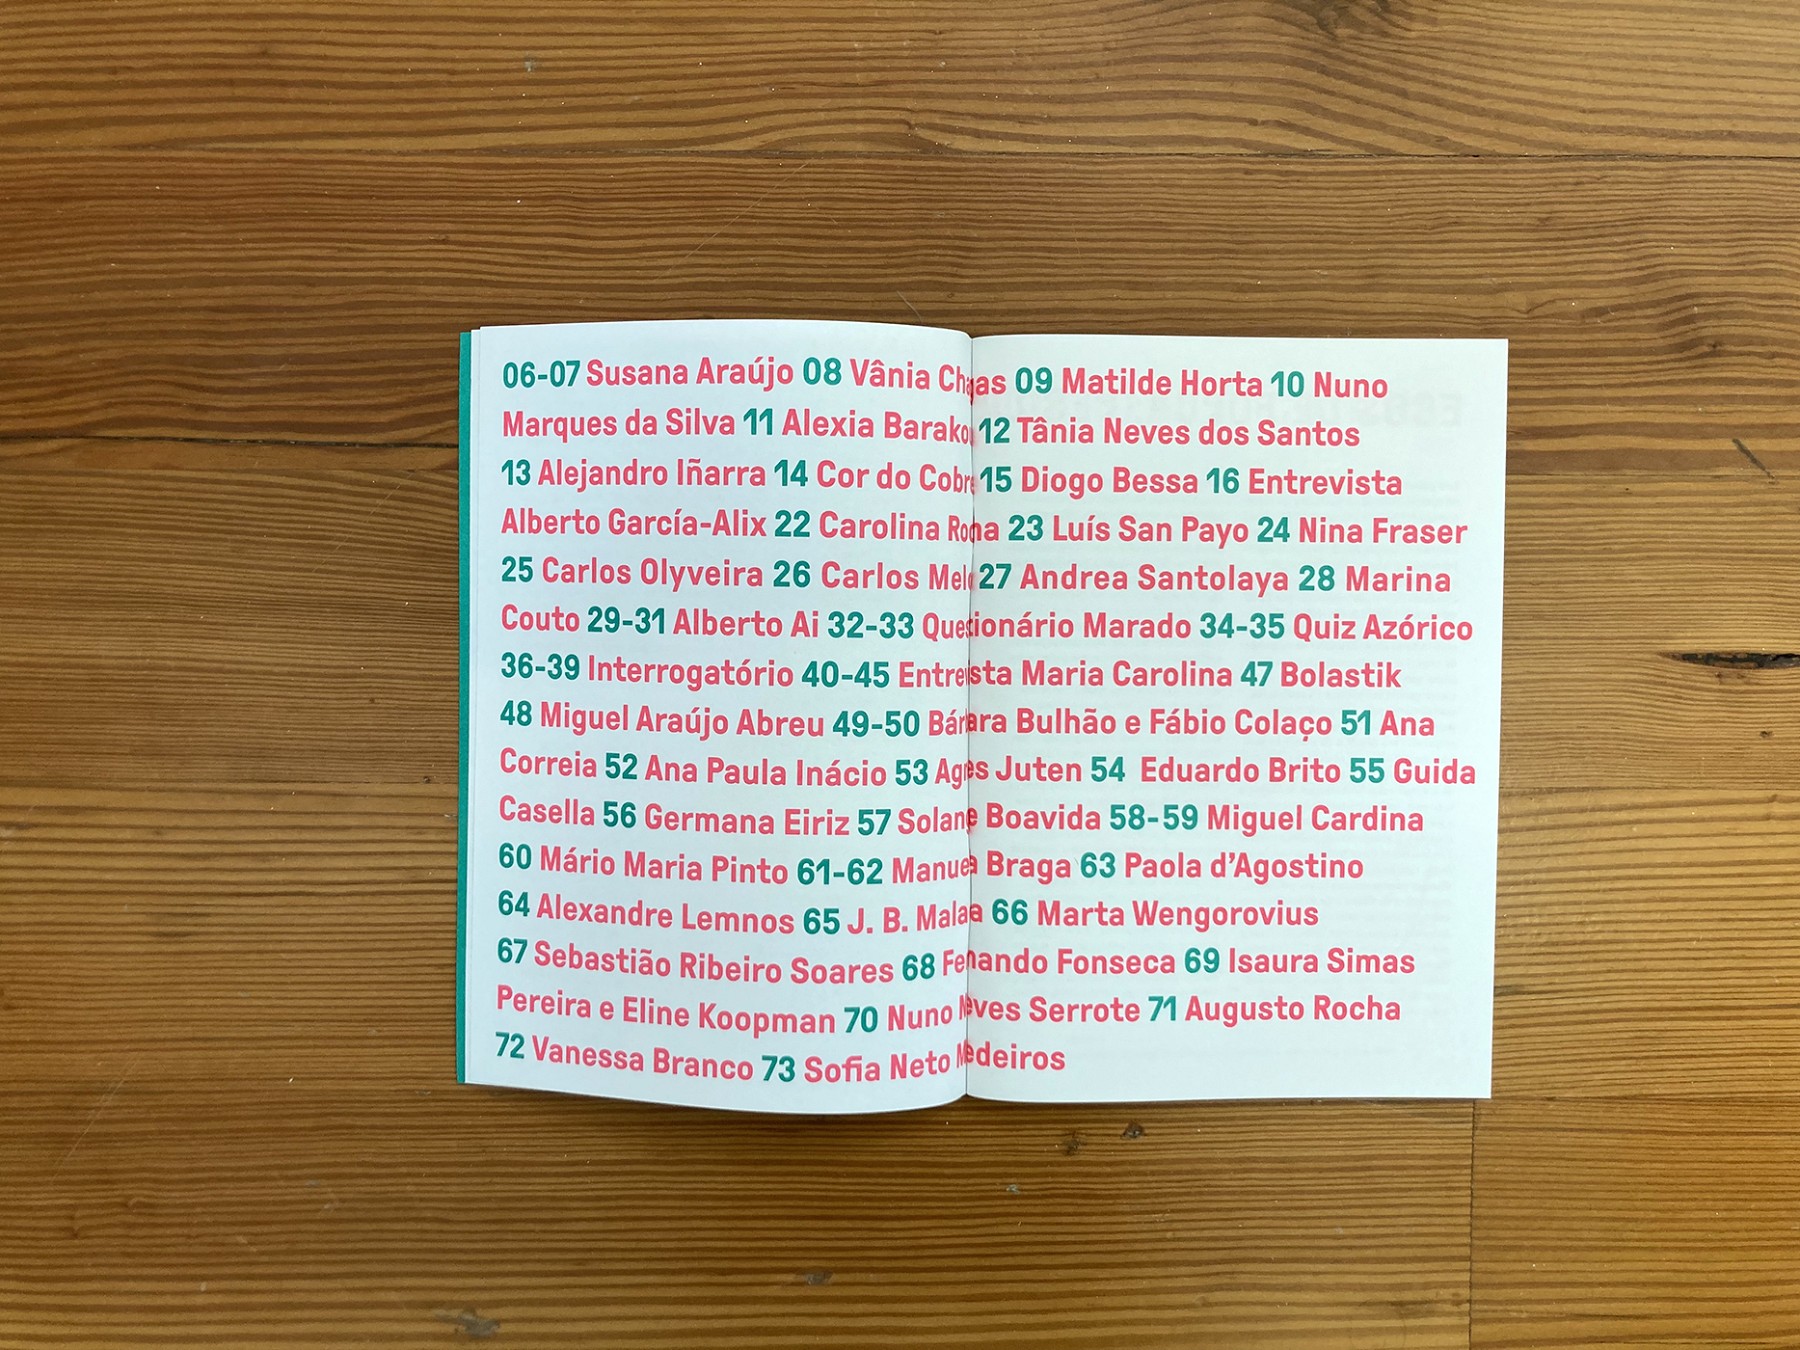 06-07 Susana Araújo 08 Vânia Chagas 09 Matilde Horta 10 Nuno
Marques da Silva 11 Alexia Barakou 12 Tânia Neves dos Santos
13 Alejandro Iñarra 14 Cor do Cobre 15 Diogo Bessa 16 Entrevista
Alberto García-Alix 22 Carolina Rocha 23 Luís San Payo 24 Nina Fraser
25 Carlos Olyveira 26 Carlos Melo 27 Andrea Santolaya 28 Marina
Couto 29-31 Alberto Ai 32-33 Questionário Marado 34-35 Quiz Azórico
36-39 Interrogatório 40-45 Entrevista Maria Carolina 47 Bolastik
48 Miguel Araújo Abreu 49-50 Bárbara Bulhão e Fábio Colaço 51 Ana
Correia 52 Ana Paula Inácio 53 Agnes Juten 54 Eduardo Brito 55 Guida
Casella 56 Germana Eiriz 57 Solange Boavida 58-59 Miguel Cardina
60 Mário Maria Pinto 61-62 Manuela Braga 63 Paola d’Agostino
64 Alexandre Lemnos 65 J. B. 66 Marta Wengorovius
67 Sebastião Ribeiro Soares 68 Fernando Fonseca 69 Isaura Simas
Pereira e Eline Koopman 70 Nuno Neves Serrote 71 Augusto Rocha
72 Vanessa Branco 73 Sofia Neto Medeiros